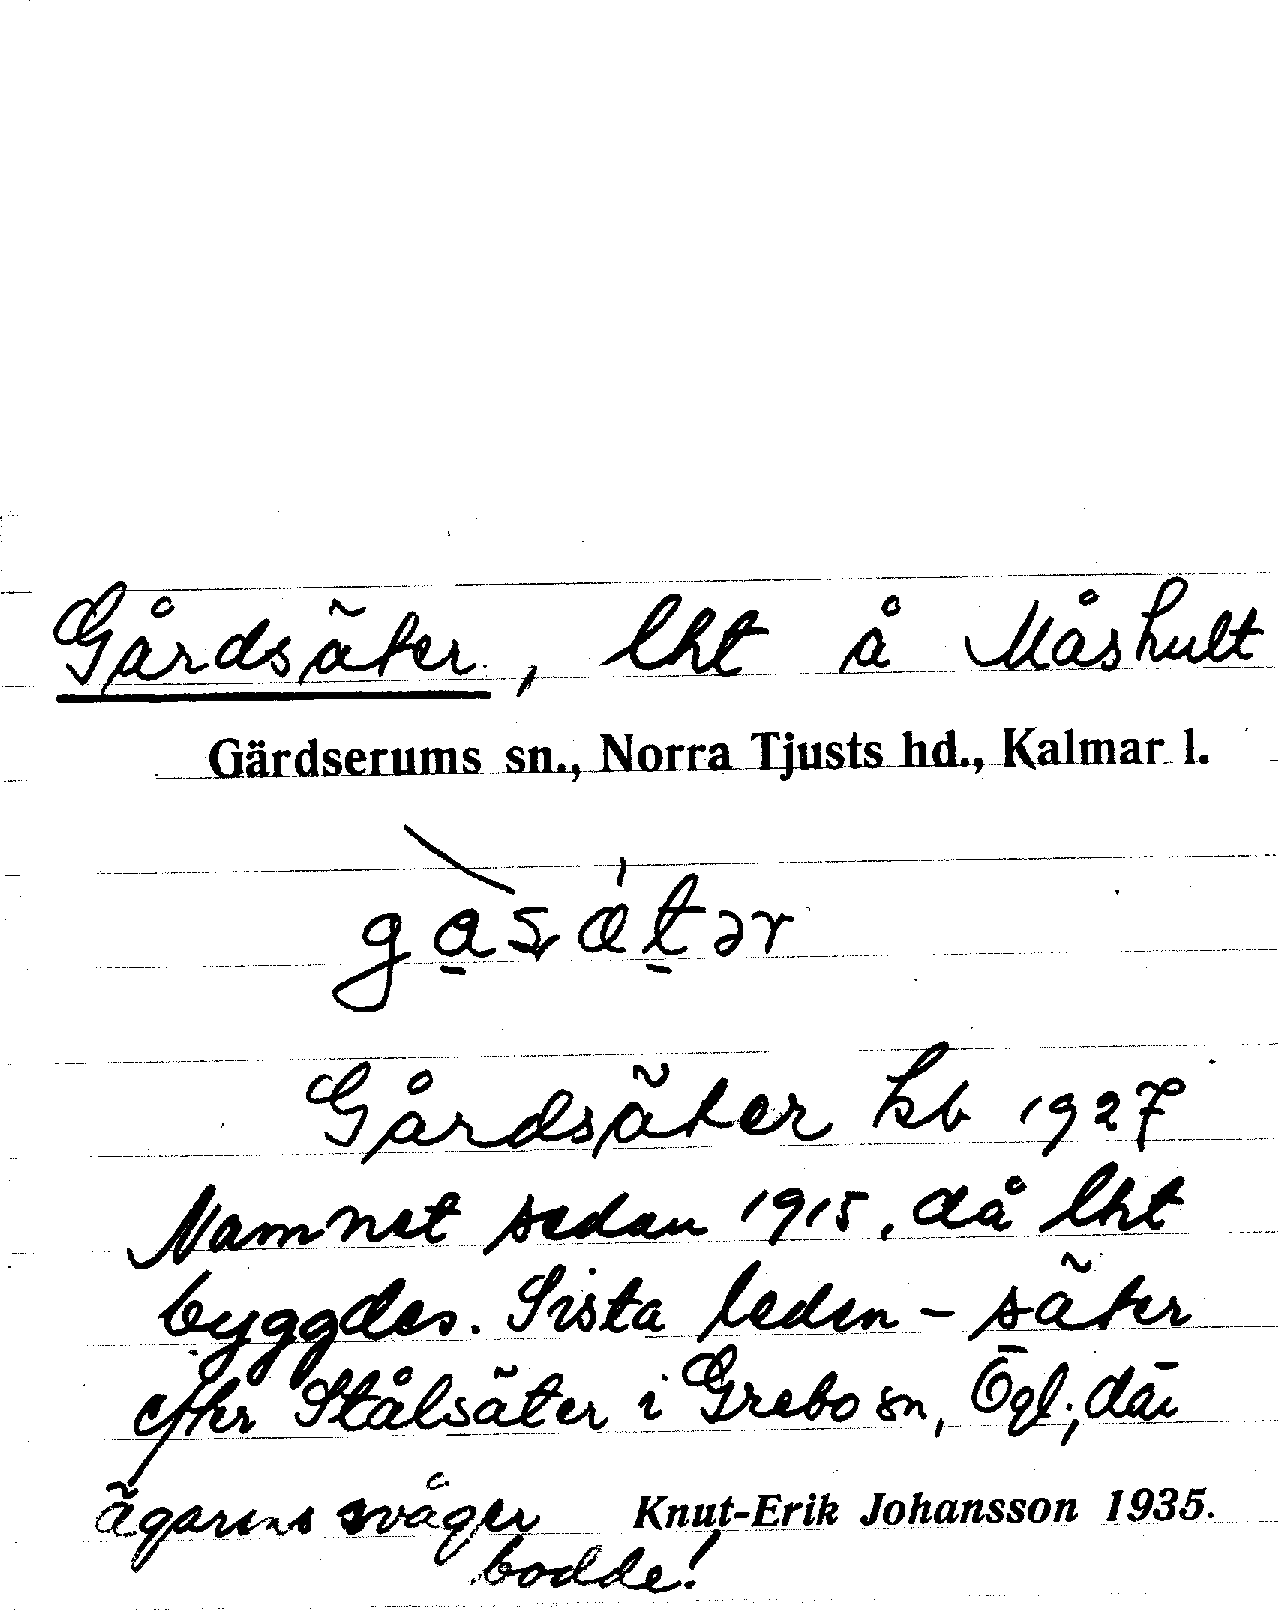 Gårdsäter, lht å Måshult
Gärdserums sn., Norra Tjusts hd., Kalmar l.
Gårdsäter kb 1927
Namnet sedan 1915, då lht
byggdes. Sista leden - säter
efter Stålsäter i Grebo sn, Ögl., där
ägarens svåger Knut-Erik Johansson 1935.
bodde!